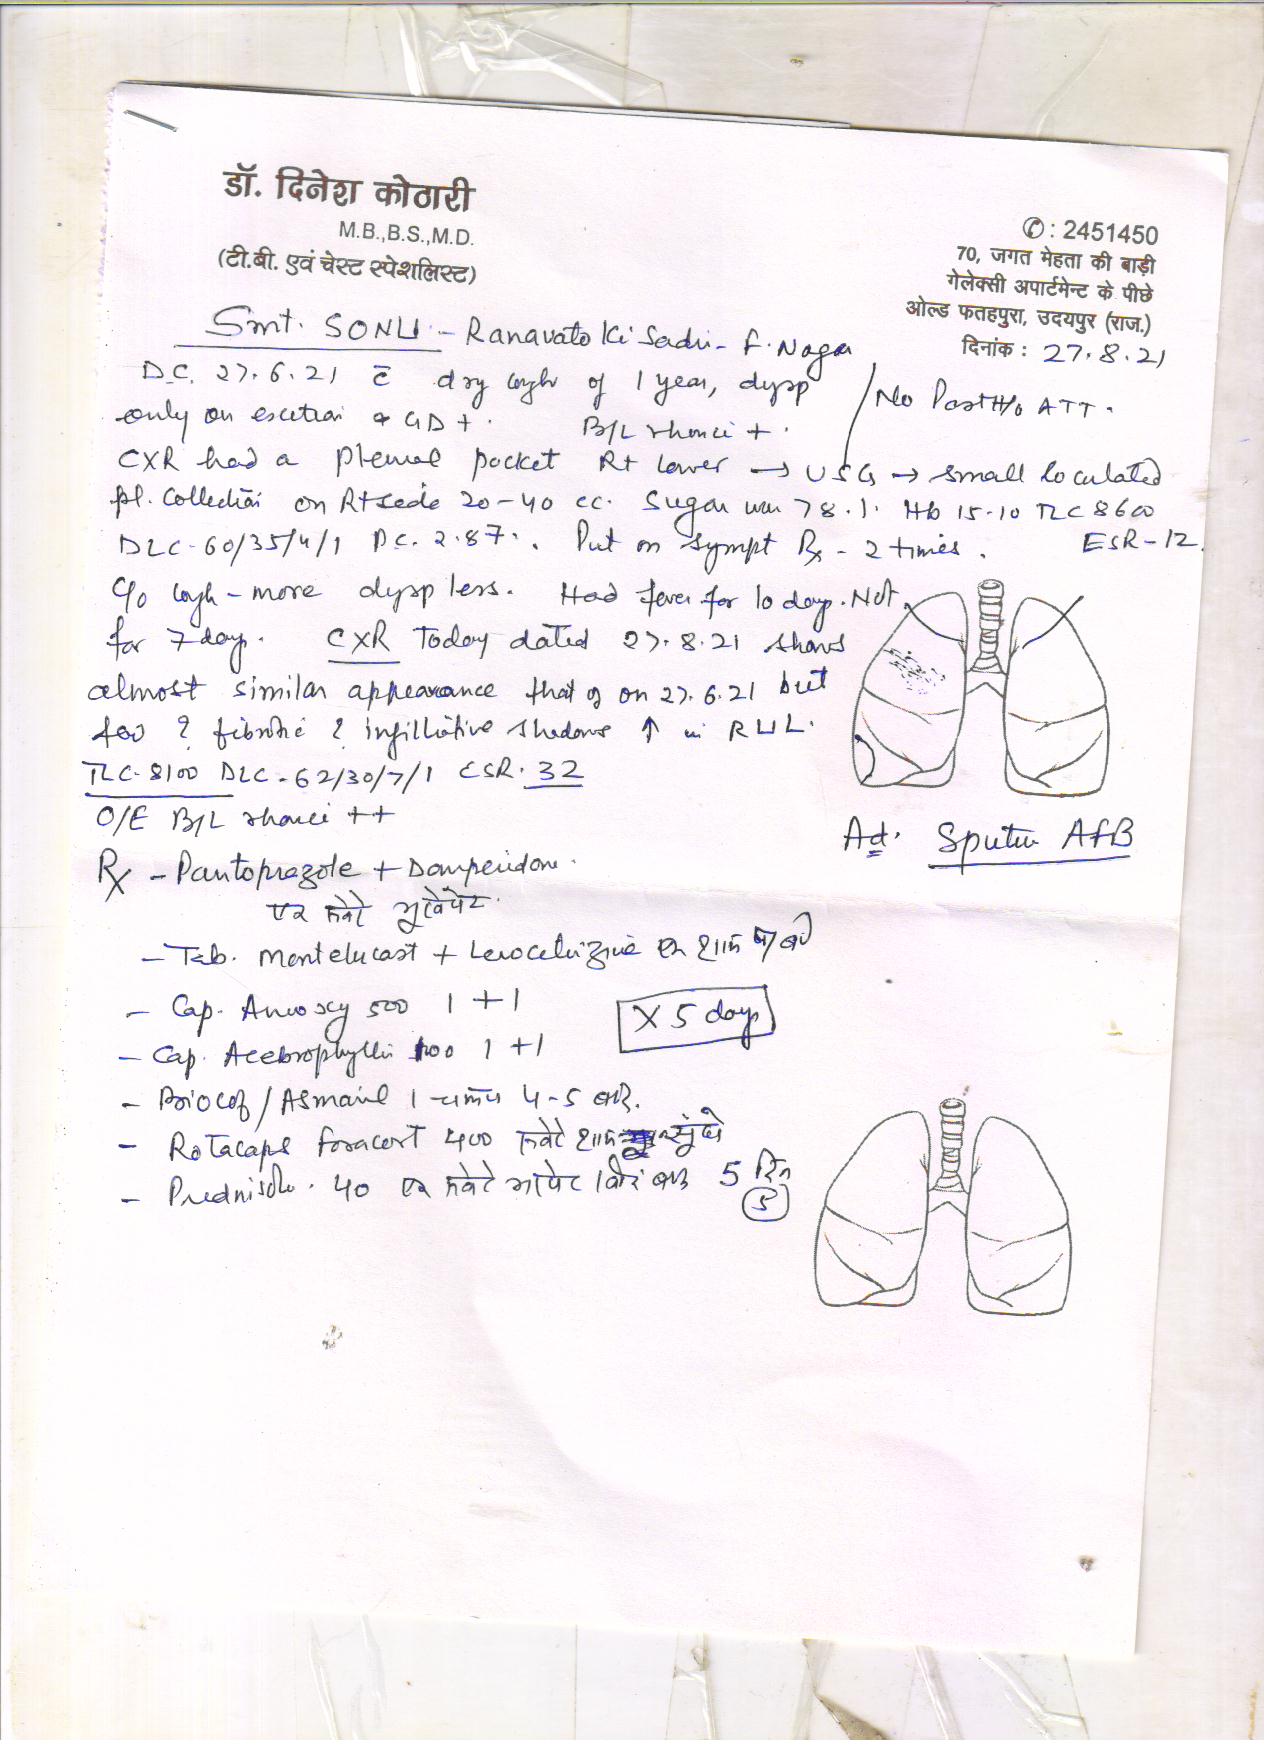 डॉ. दिनेश कोठारी
M.B.,B.S.,M.D.
(टी.बी. एवं चेस्ट स्पेशलिस्ट)
✆ : 2451450
70, जगत मेहता की बाड़ी
गेलेक्सी अपार्टमेन्ट के पीछे
ओल्ड फतहपुरा, उदयपुर (राज.)
दिनांक : 27.8.21
Smt. SONU - Ranavato Ki Sadri - F. Nagar
D.C. 27.6.21 c̄ dry cough of 1 year, dysp
No Past H/o ATT.
only on exertion & GD +. B/L rhonci +.
CXR had a pleural pocket Rt lower → USG → small loculated
pl. Collection on Rt side 20-40 cc. Sugar was 78.1. Hb 15.10 TLC 8600
DLC-60/35/4/1 P.C. 2.87. Put on sympt Rx - 2 times. ESR-12
C/o cough - more dysp less. Had fever for 10 day. Not
for 7 day. CXR Today dated 27.8.21 shows
almost similar appearance that of on 27.6.21 but
? fibrotic ? infiltrative shadows ↑ in RUL.
TLC-8100 DLC-62/30/7/1 ESR.32
O/E B/L rhonci ++
Ad. Sputum AFB
Rx - Pantoprazole + Domperidone
एक सवेरे भूखे पेट
- Tab. Montelucast + Levocetrizine एक शाम
- Cap. Amoxy 500 1 + 1
X 5 day
- Cap. Acebrophyllin 100 1 + 1
- Briocof / Asmanil 1 चम्मच 4-5 बार.
- Rotacaps foracort 400 सवेरे शाम सूंघे
- Prednisolo. 40 एक सवेरे बाद 5 दिन
5